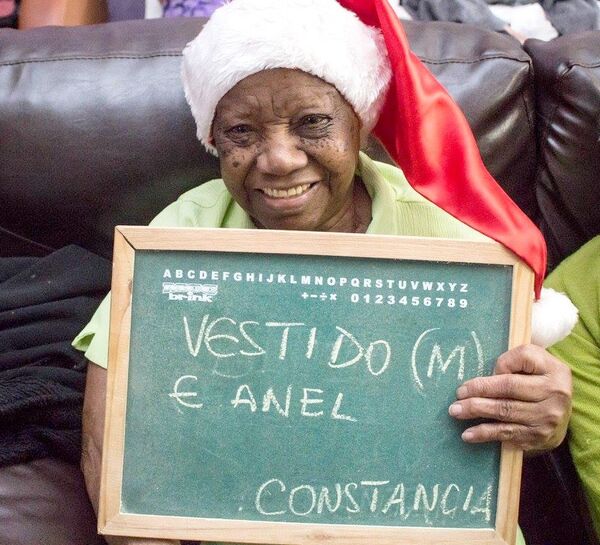 ABCDEFGHIJKLMNOPQRSTUVWXYZ
br-ink
+-÷× 0123456789
VESTIDO (M)
E ANEL
CONSTANCIA